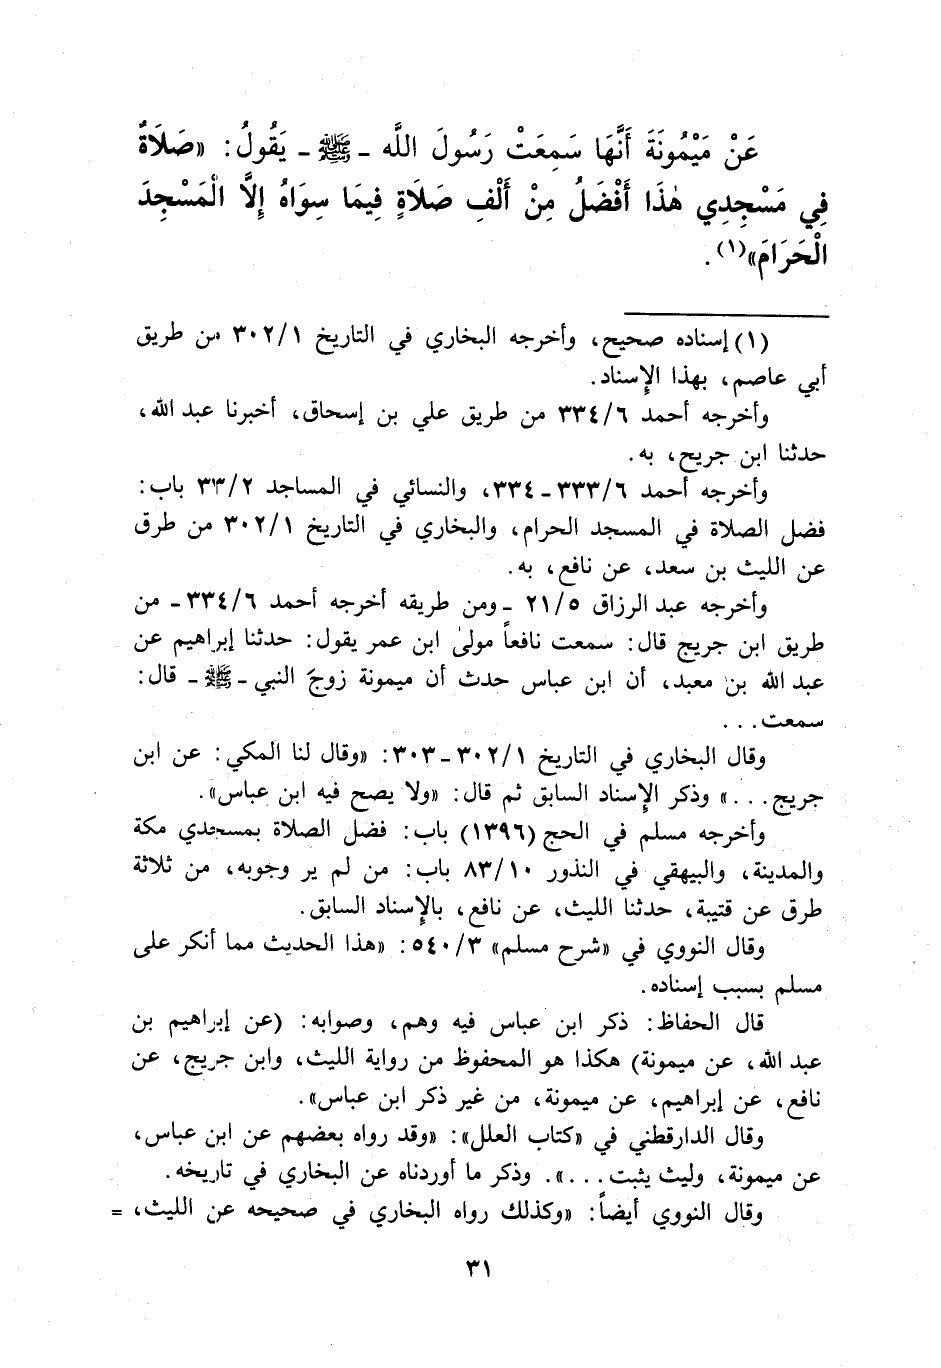 عَنْ مَيْمُونَةَ أَنَّهَا سَمِعَتْ رَسُولَ اللَّه ـ ﷺ ـ يَقُولُ: «صَلَاةٌ
فِي مَسْجِدِي هٰذَا أَفْضَلُ مِنْ أَلْفِ صَلَاةٍ فِيمَا سِوَاهُ إِلَّا الْمَسْجِدَ
الْحَرَامَ»(١).
(١) إسناده صحيح، وأخرجه البخاري في التاريخ ٣٠٢/١ من طريق
أبي عاصم، بهذا الإسناد.
وأخرجه أحمد ٣٣٤/٦ من طريق علي بن إسحاق، أخبرنا عبد الله،
حدثنا ابن جريج، به.
وأخرجه أحمد ٣٣٣/٦ ـ ٣٣٤، والنسائي في المساجد ٣٣/٢ باب:
فضل الصلاة في المسجد الحرام، والبخاري في التاريخ ٣٠٢/١ من طرق
عن الليث بن سعد، عن نافع، به.
وأخرجه عبد الرزاق ٢١/٥ ـ ومن طريقه أخرجه أحمد ٣٣٤/٦ ـ من
طريق ابن جريج قال: سمعت نافعاً مولىٰ ابن عمر يقول: حدثنا إبراهيم عن
عبد الله بن معبد، أن ابن عباس حدث أن ميمونة زوجَ النبي ـ ﷺ ـ قال:
سمعت...
وقال البخاري في التاريخ ٣٠٢/١ ـ ٣٠٣: «وقال لنا المكي: عن ابن
جريج...» وذكر الإسناد السابق ثم قال: «ولا يصح فيه ابن عباس».
وأخرجه مسلم في الحج (١٣٩٦) باب: فضل الصلاة بمسجدي مكة
والمدينة، والبيهقي في النذور ٨٣/١٠ باب: من لم ير وجوبه، من ثلاثة
طرق عن قتيبة، حدثنا الليث، عن نافع، بالإسناد السابق.
وقال النووي في «شرح مسلم» ٥٤٠/٣: «هذا الحديث مما أنكر على
مسلم بسبب إسناده.
قال الحفاظ: ذكر ابن عباس فيه وهم، وصوابه: (عن إبراهيم بن
عبد الله، عن ميمونة) هكذا هو المحفوظ من رواية الليث، وابن جريج، عن
نافع، عن إبراهيم، عن ميمونة، من غير ذكر ابن عباس».
وقال الدارقطني في «كتاب العلل»: «وقد رواه بعضهم عن ابن عباس،
عن ميمونة، وليث يثبت...». وذكر ما أوردناه عن البخاري في تاريخه.
وقال النووي أيضاً: «وكذلك رواه البخاري في صحيحه عن الليث، =
٣١